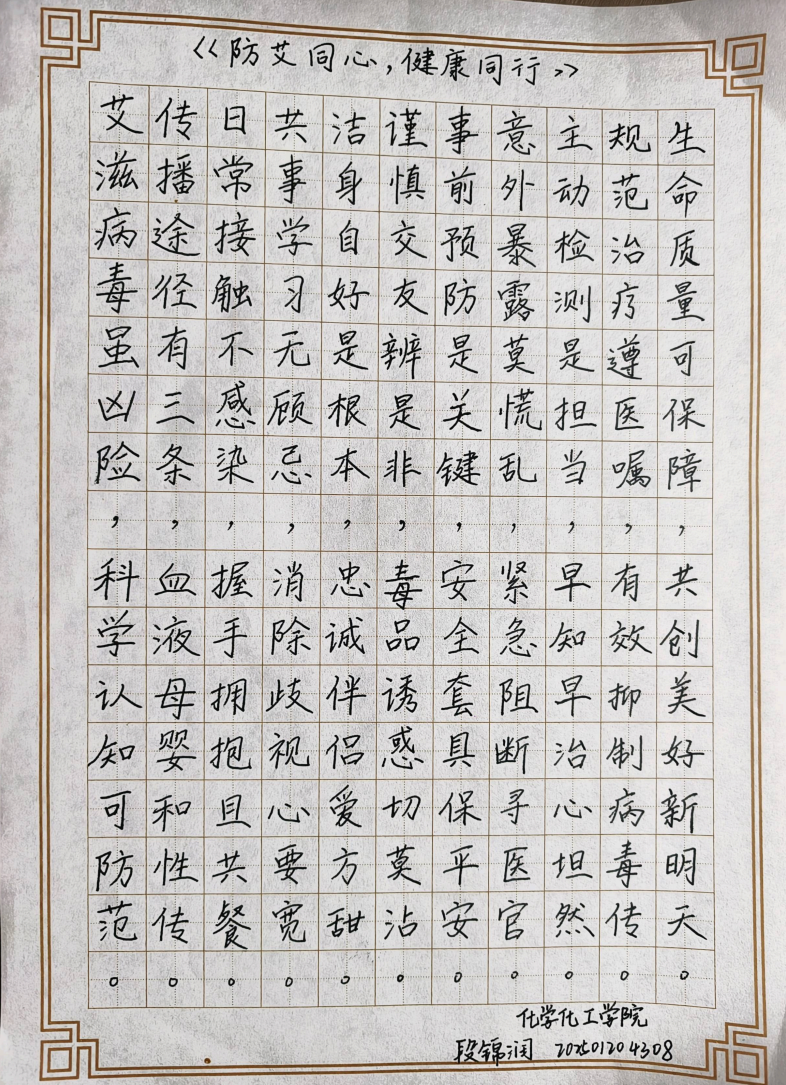 《防艾同心,健康同行》
艾滋病毒虽凶险,科学认知可防范。
传播途径有三条,血液母婴和性传。
日常接触不感染,握手拥抱且共餐。
共事学习无顾忌,消除歧视心要宽。
洁身自好是根本,忠诚伴侣爱方甜。
谨慎交友辨是非,毒品诱惑切莫沾。
事前预防是关键,安全套具保平安。
意外暴露莫慌乱,紧急阻断寻医官。
主动检测是担当,早知早治心坦然。
规范治疗遵医嘱,有效抑制病毒传。
生命质量可保障,共创美好新明天。
化学化工学院
段锦润 202501204308